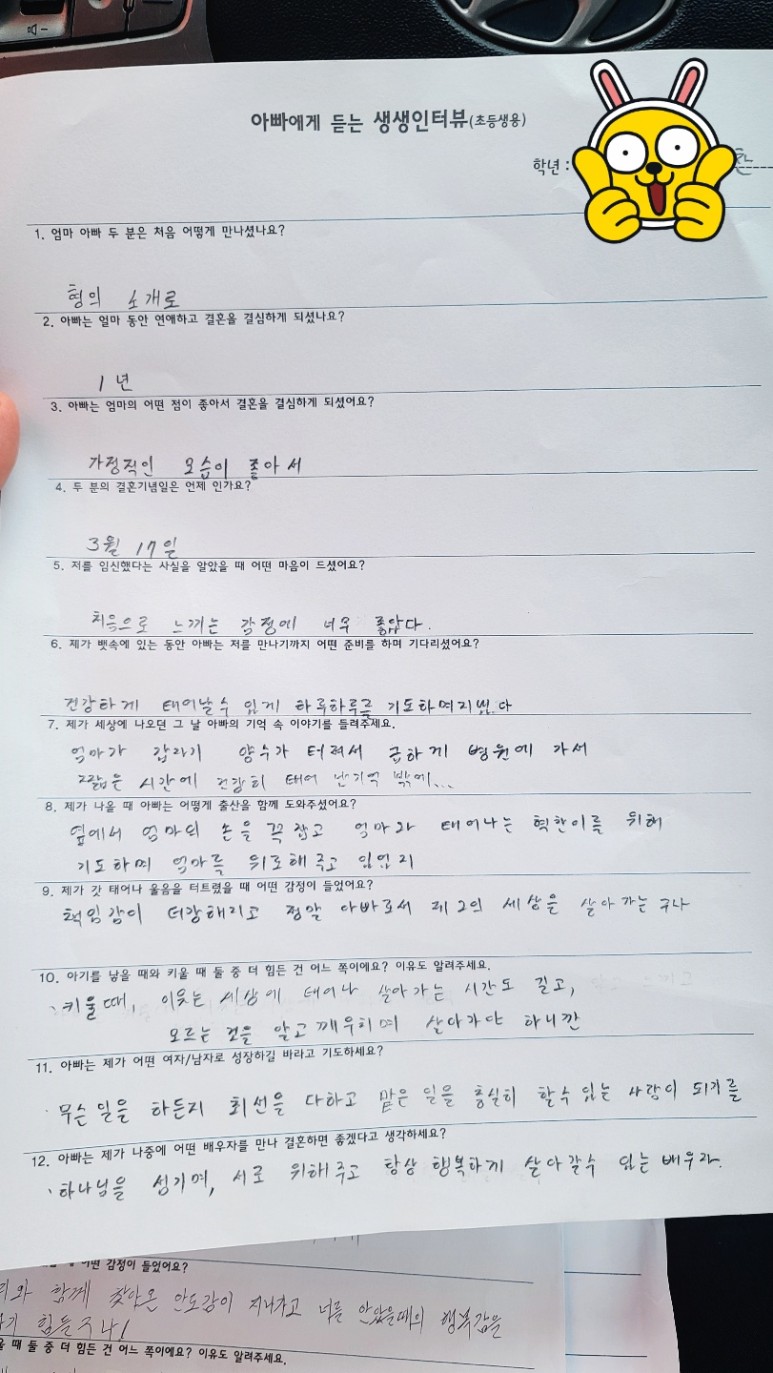 아빠에게 듣는 생생인터뷰(초등생용)
학년 :
1. 엄마 아빠 두 분은 처음 어떻게 만나셨나요?
형의 소개로
2. 아빠는 얼마 동안 연애하고 결혼을 결심하게 되셨나요?
1년
3. 아빠는 엄마의 어떤 점이 좋아서 결혼을 결심하게 되셨어요?
가정적인 모습이 좋아서
4. 두 분의 결혼기념일은 언제 인가요?
3월 17일
5. 저를 임신했다는 사실을 알았을 때 어떤 마음이 드셨어요?
처음으로 느끼는 감정에 너무 좋았다.
6. 제가 뱃속에 있는 동안 아빠는 저를 만나기까지 어떤 준비를 하며 기다리셨어요?
건강하게 태어날수 있게 하루하루를 기도하며지냈다
7. 제가 세상에 나오던 그 날 아빠의 기억 속 이야기를 들려주세요.
엄마가 갑자기 양수가 터져서 급하게 병원에 가서
짧은 시간에 건강히 태어 난기억 밖에...
8. 제가 나올 때 아빠는 어떻게 출산을 함께 도와주셨어요?
옆에서 엄마의 손을 꼭 잡고 엄마와 태어나는 위해
기도하며 엄마를 위로해 주고 있었지
9. 제가 갓 태어나 울음을 터트렸을 때 어떤 감정이 들었어요?
책임감이 더강해지고 정말 아빠로서 제2의 세상을 살아 가는구나
10. 아기를 낳을 때와 키울 때 둘 중 더 힘든 건 어느 쪽이에요? 이유도 알려주세요.
키울때, 세상에 태어나 살아가는 시간도 길고,
모르는 것을 알고 깨우치며 살아가야 하니깐
11. 아빠는 제가 어떤 여자/남자로 성장하길 바라고 기도하세요?
무슨일을 하든지 최선을 다하고 맡은 일을 충실히 할수 있는 사람이 되기를
12. 아빠는 제가 나중에 어떤 배우자를 만나 결혼하면 좋겠다고 생각하세요?
하나님을 섬기며, 서로 위해주고 항상 행복하게 살아갈수 있는 배우자.
어떤 감정이 들었어요?
함께 찾아온 안도감이 지나가고 너를 안았을때의 행복감을
힘들구나!
울 때 둘 중 더 힘든 건 어느 쪽이에요? 이유도 알려주세요.